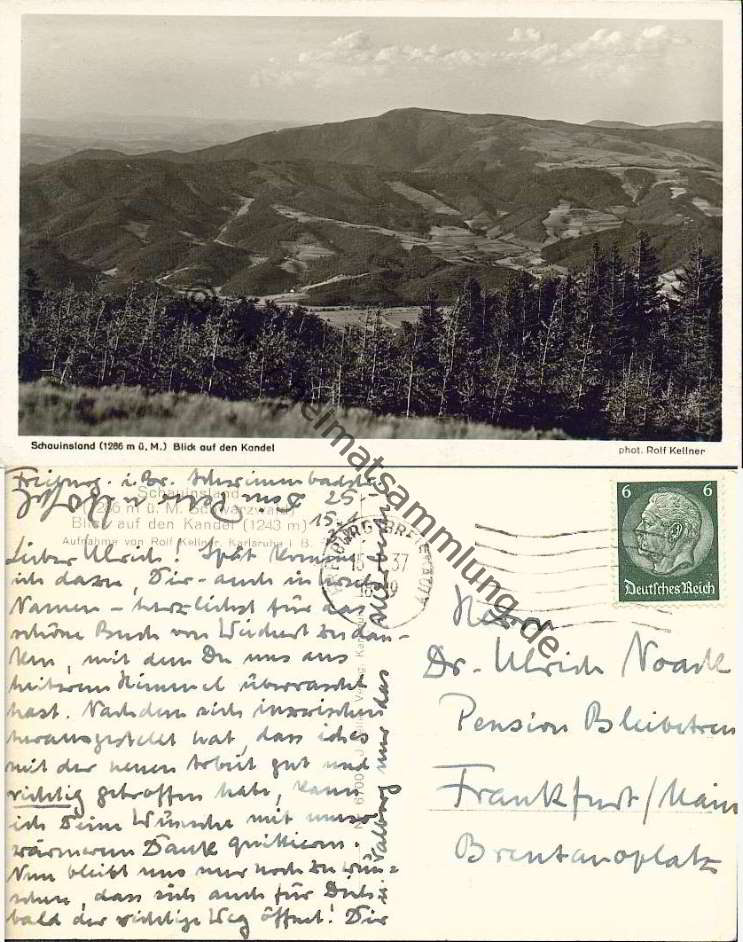 Schauinsland (1286 m ü. M.) Blick auf den Kandel
phot. Rolf Kellner
heimatsammlung.de
Freiburg i. Br. Schwimmbadstr.
25
15.
Schauinsland
(1286 m ü. M. Schwarzwald)
Blick auf den Kandel (1243 m)
Aufnahme von Rolf Kellner, Karlsruhe i. B.
Lieber Ulrich! Spät komme
ich dazu, Dir - auch in
Namen - herzlichst für das
schöne Buch von Wiechert zu dan-
ken, mit dem Du uns aus
heiterem Himmel überrascht
hast. Nachdem sich inzwischen
herausgestellt hat, dass ich es
mit der neuen Arbeit gut und
richtig getroffen habe, kann
ich Deine Wünsche mit umso
wärmerem Danke quittieren.
Nun bleibt uns nur noch zu wün-
schen, dass sich auch für Dich
bald der richtige Weg öffnet! Dir
nur das
FREIBURG (BREISGAU)
15
37
6 6
Deutsches Reich
Dr. Ulrich Noack
Pension Bleibetreu
Frankfurt/Main
Brentanoplatz